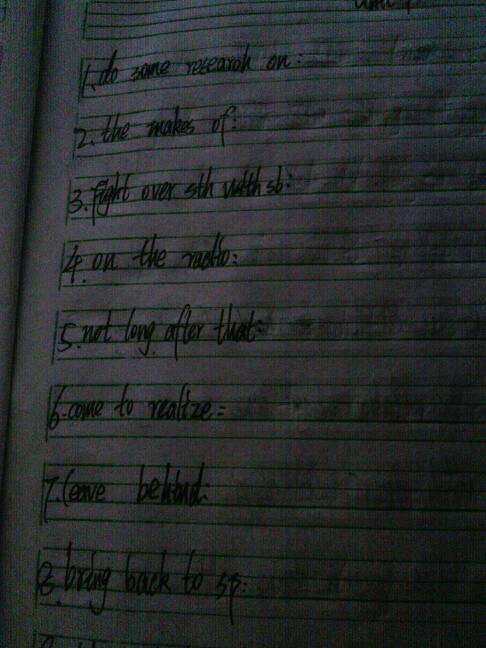 Unit 1
1. do some research on:
2. the makes of:
3. fight over sth with sb:
4. on the radio:
5. not long after that:
6. come to realize:
7. leave behind:
8. bring back to sp: